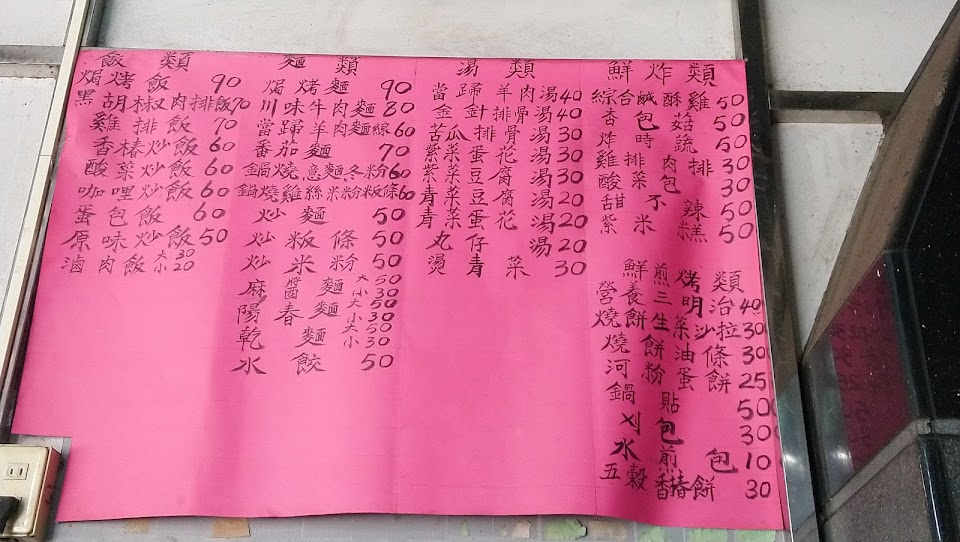 飯類
焗烤飯 90
黑胡椒肉排飯70
雞排飯 70
香椿炒飯 60
酸菜炒飯 60
咖哩炒飯 60
蛋包飯 60
原味炒飯 50
滷肉飯 大30 小20
麵類
焗烤麵 90
川味牛肉麵 80
當歸羊肉麵線 60
番茄麵 70
鍋燒意麵冬粉60
鍋燒雞絲米粉粄條60
炒麵 50
炒粄條 50
炒米粉 50
麻醬麵 大50 小30
陽春麵 大50 小30
乾麵 大50 小30
水餃 50
湯類
當歸羊肉湯40
金針排骨湯40
苦瓜排骨湯30
紫菜蛋花湯30
紫菜豆腐湯30
青菜豆腐湯20
青菜蛋花湯20
丸仔湯20
燙青菜30
鮮炸類
綜合鹹酥雞 50
杏包菇 50
炸時蔬 50
雞排肉排 30
酸菜包 30
甜不辣 50
紫米糕 50
鮮煎烤類
營養三明治 40
燒餅生菜沙拉 30
燒餅油條 30
河粉蛋餅 25
鍋貼 50
刈包 30
水煎包 10
五穀香椿餅 30